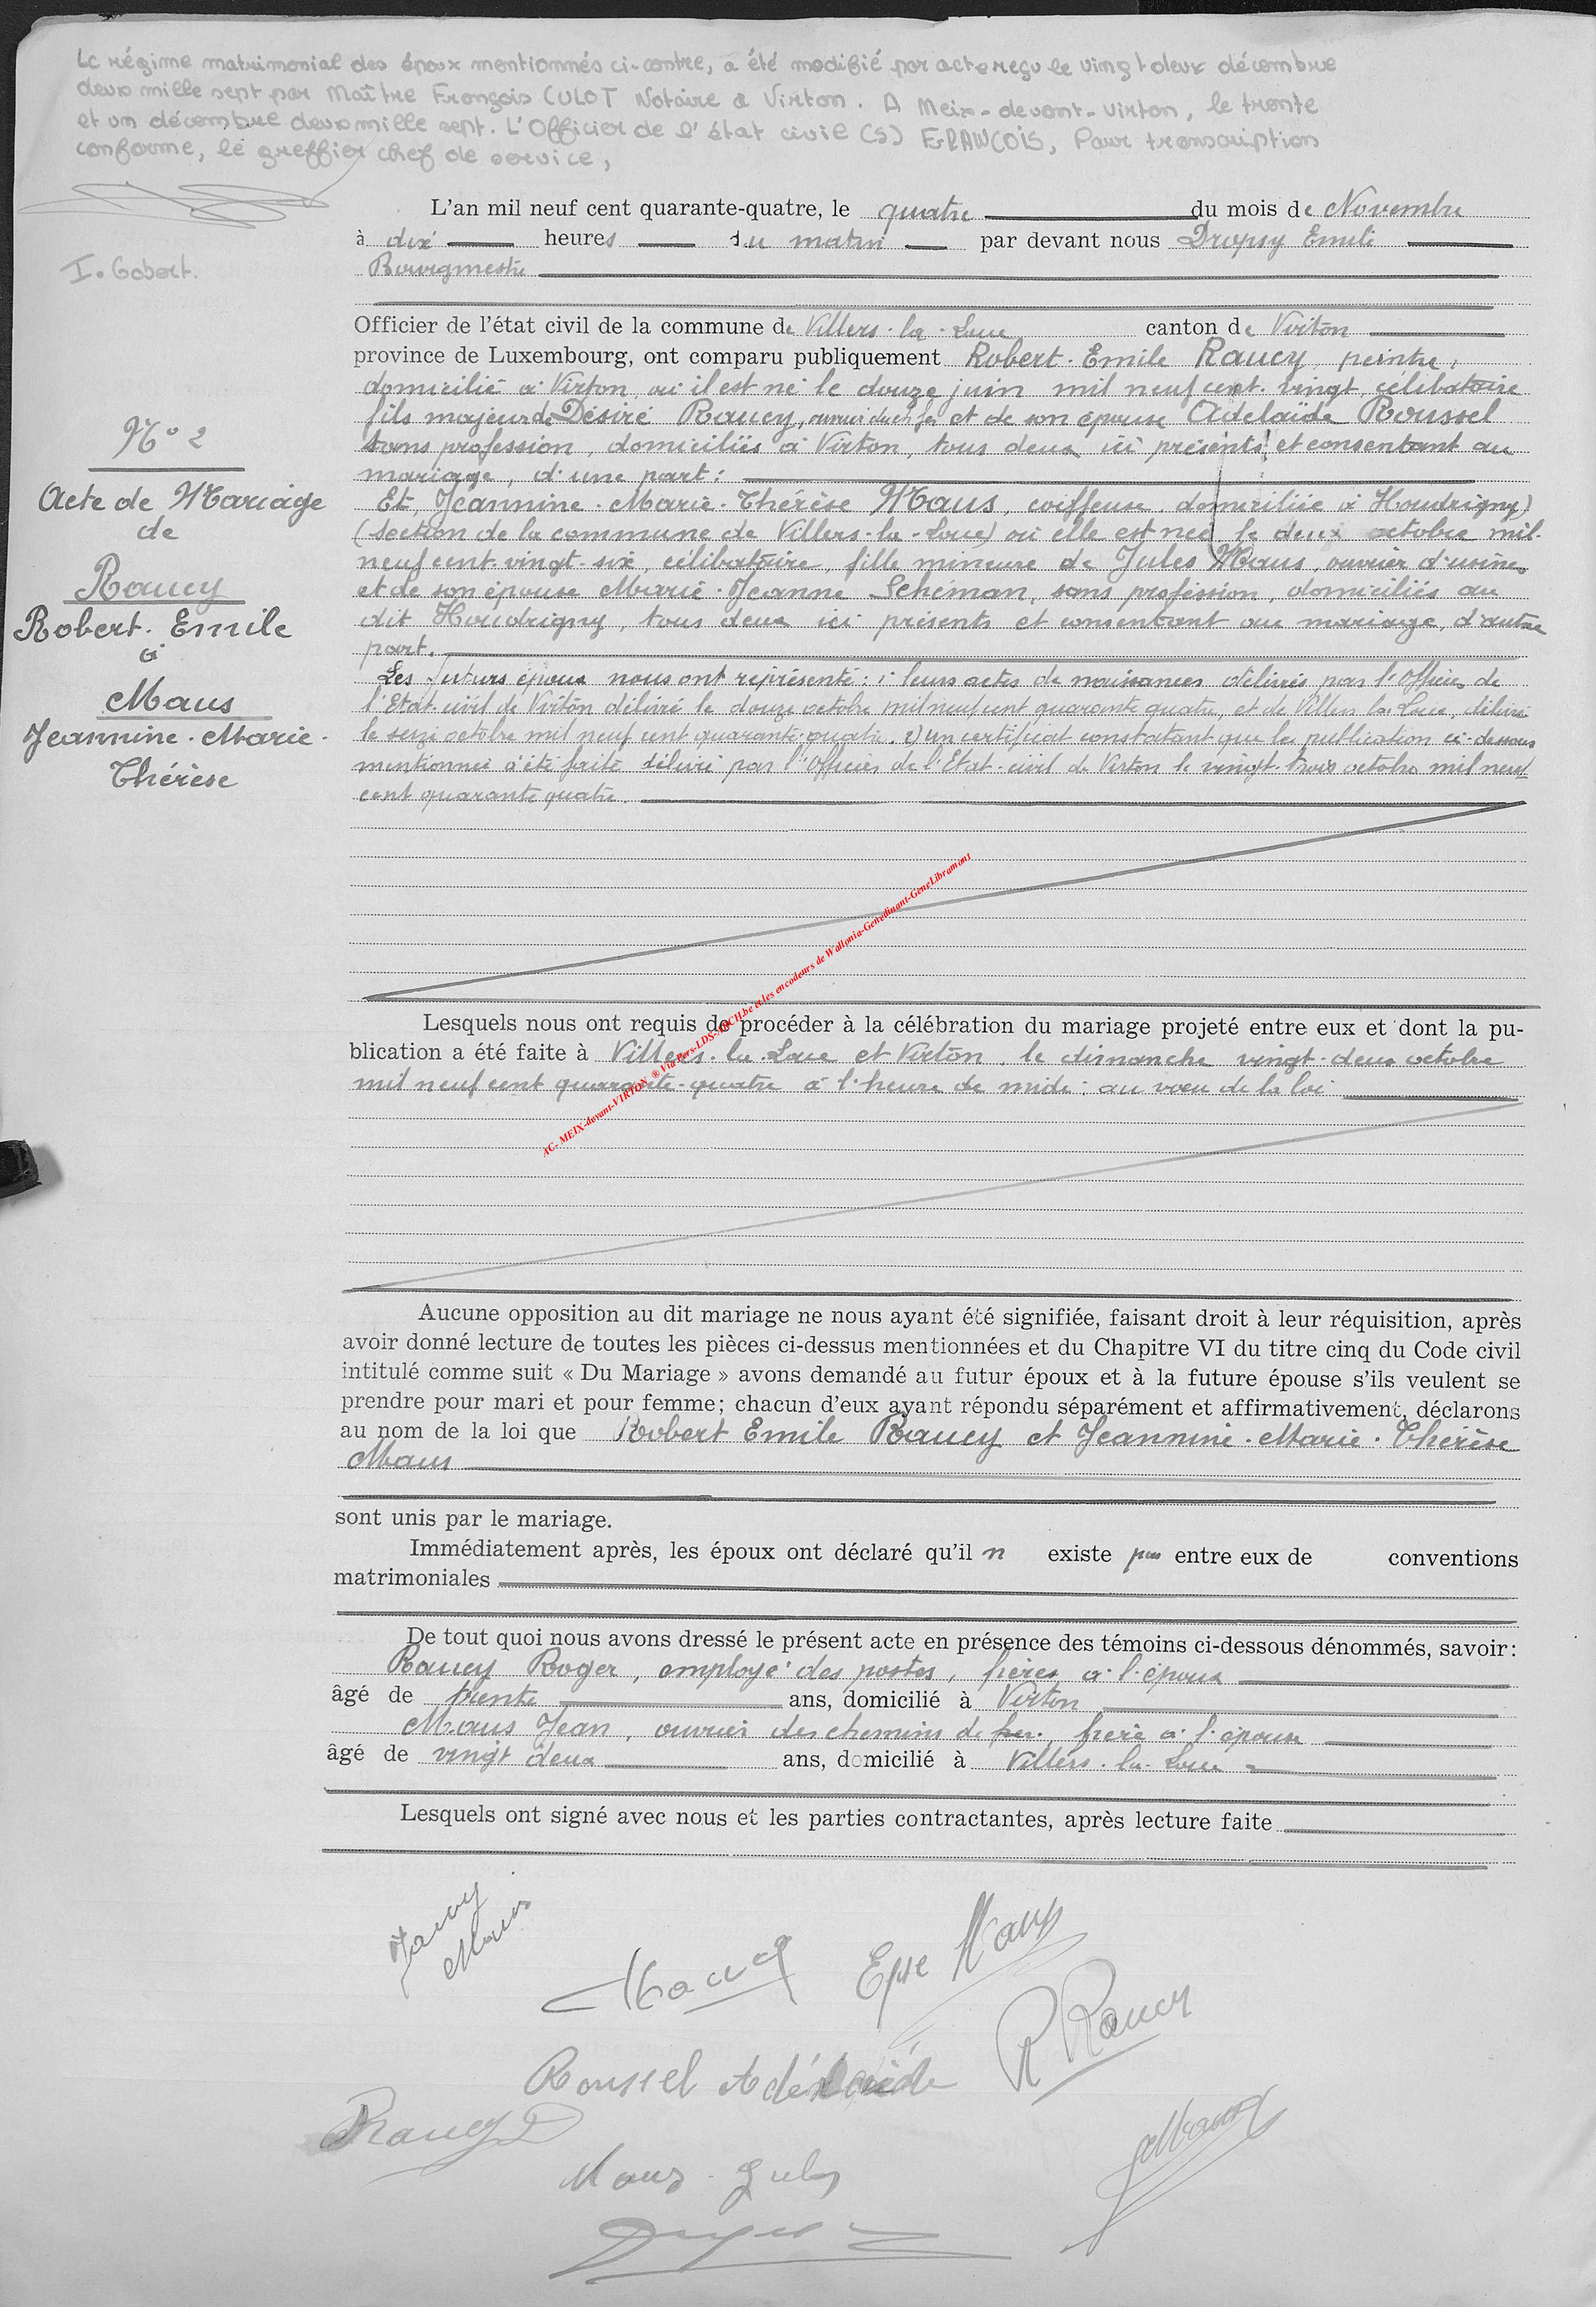 Le régime matrimonial des époux mentionnés ci-contre, a été modifié par acte reçu le vingt deux décembre
deux mille sept par Maître François CULOT Notaire à Virton. A Meix-devant-Virton, le trente
et un décembre deux mille sept. L'Officier de l'état civil (S) FRANCOIS, Pour transcription
conforme, le greffier chef de service,
I. Gobert.
N° 2
Acte de Mariage
de
Raucy
Robert. Emile
&
Maus
Jeannine. Marie.
Thérèse
L'an mil neuf cent quarante-quatre, le quatre du mois de Novembre
à dix heures du matin par devant nous Dropsy Emile
Bourgmestre
Officier de l'état civil de la commune de Villers-la-Loue canton de Virton
province de Luxembourg, ont comparu publiquement Robert. Emile Raucy, peintre,
domicilié à Virton où il est né le douze juin mil neuf cent vingt, célibataire
fils majeur de Désiré Raucy, ouvrier du ch. fer et de son épouse Adelaïde Roussel
sans profession, domiciliés à Virton, tous deux ici présents et consentant au
mariage, d'une part;
Et, Jeannine. Marie. Thérèse Maus, coiffeuse domiciliée à Houdrigny)
(Section de la commune de Villers-la-Loue) où elle est née le deux octobre mil.
neuf cent vingt-six, célibataire, fille mineure de Jules Maus, ouvrier d'usine,
et de son épouse Marie. Jeanne Schéman, sans profession, domiciliés au
dit Houdrigny, tous deux ici présents et consentant au mariage, d'autre
part.
Les futurs époux nous ont représenté: 1° leurs actes de naissances délivrés par l'Officier de
l'Etat civil de Virton délivré le douze octobre mil neuf cent quarante quatre, et de Villers la Loue, délivré
le seize octobre mil neuf cent quarante-quatre. 2) un certificat constatant que la publication ci-dessous
mentionnée a été faite délivré par l'Officier de l'Etat-civil de Virton le vingt-trois octobre mil neuf
cent quarante quatre.
AC- MEIX-devant-VIRTON ® Via Pers-LDS-ARCH.be et les encodeurs de Wallonia-Genedinant-GeneLibramont
Lesquels nous ont requis de procéder à la célébration du mariage projeté entre eux et dont la pu-
blication a été faite à Villers-la-Loue et Virton, le dimanche vingt-deux octobre
mil neuf cent quarante-quatre à l'heure de midi; au voeu de la loi
Aucune opposition au dit mariage ne nous ayant été signifiée, faisant droit à leur réquisition, après
avoir donné lecture de toutes les pièces ci-dessus mentionnées et du Chapitre VI du titre cinq du Code civil
intitulé comme suit « Du Mariage » avons demandé au futur époux et à la future épouse s'ils veulent se
prendre pour mari et pour femme; chacun d'eux ayant répondu séparément et affirmativement, déclarons
au nom de la loi que Robert Emile Raucy et Jeannine. Marie. Thérèse
Maus
sont unis par le mariage.
Immédiatement après, les époux ont déclaré qu'il n existe pas entre eux de conventions
matrimoniales
De tout quoi nous avons dressé le présent acte en présence des témoins ci-dessous dénommés, savoir:
Raucy Roger, employé des postes, frère à l'époux
âgé de trente ans, domicilié à Virton
Maus Jean, ouvrier des chemins de fer, frère à l'épouse
âgé de vingt deux ans, domicilié à Villers-la-Loue
Lesquels ont signé avec nous et les parties contractantes, après lecture faite
Raucy
Maus
Epse Maus
R Raucy
Roussel Adélaïde
Raucy D
Maus Jules